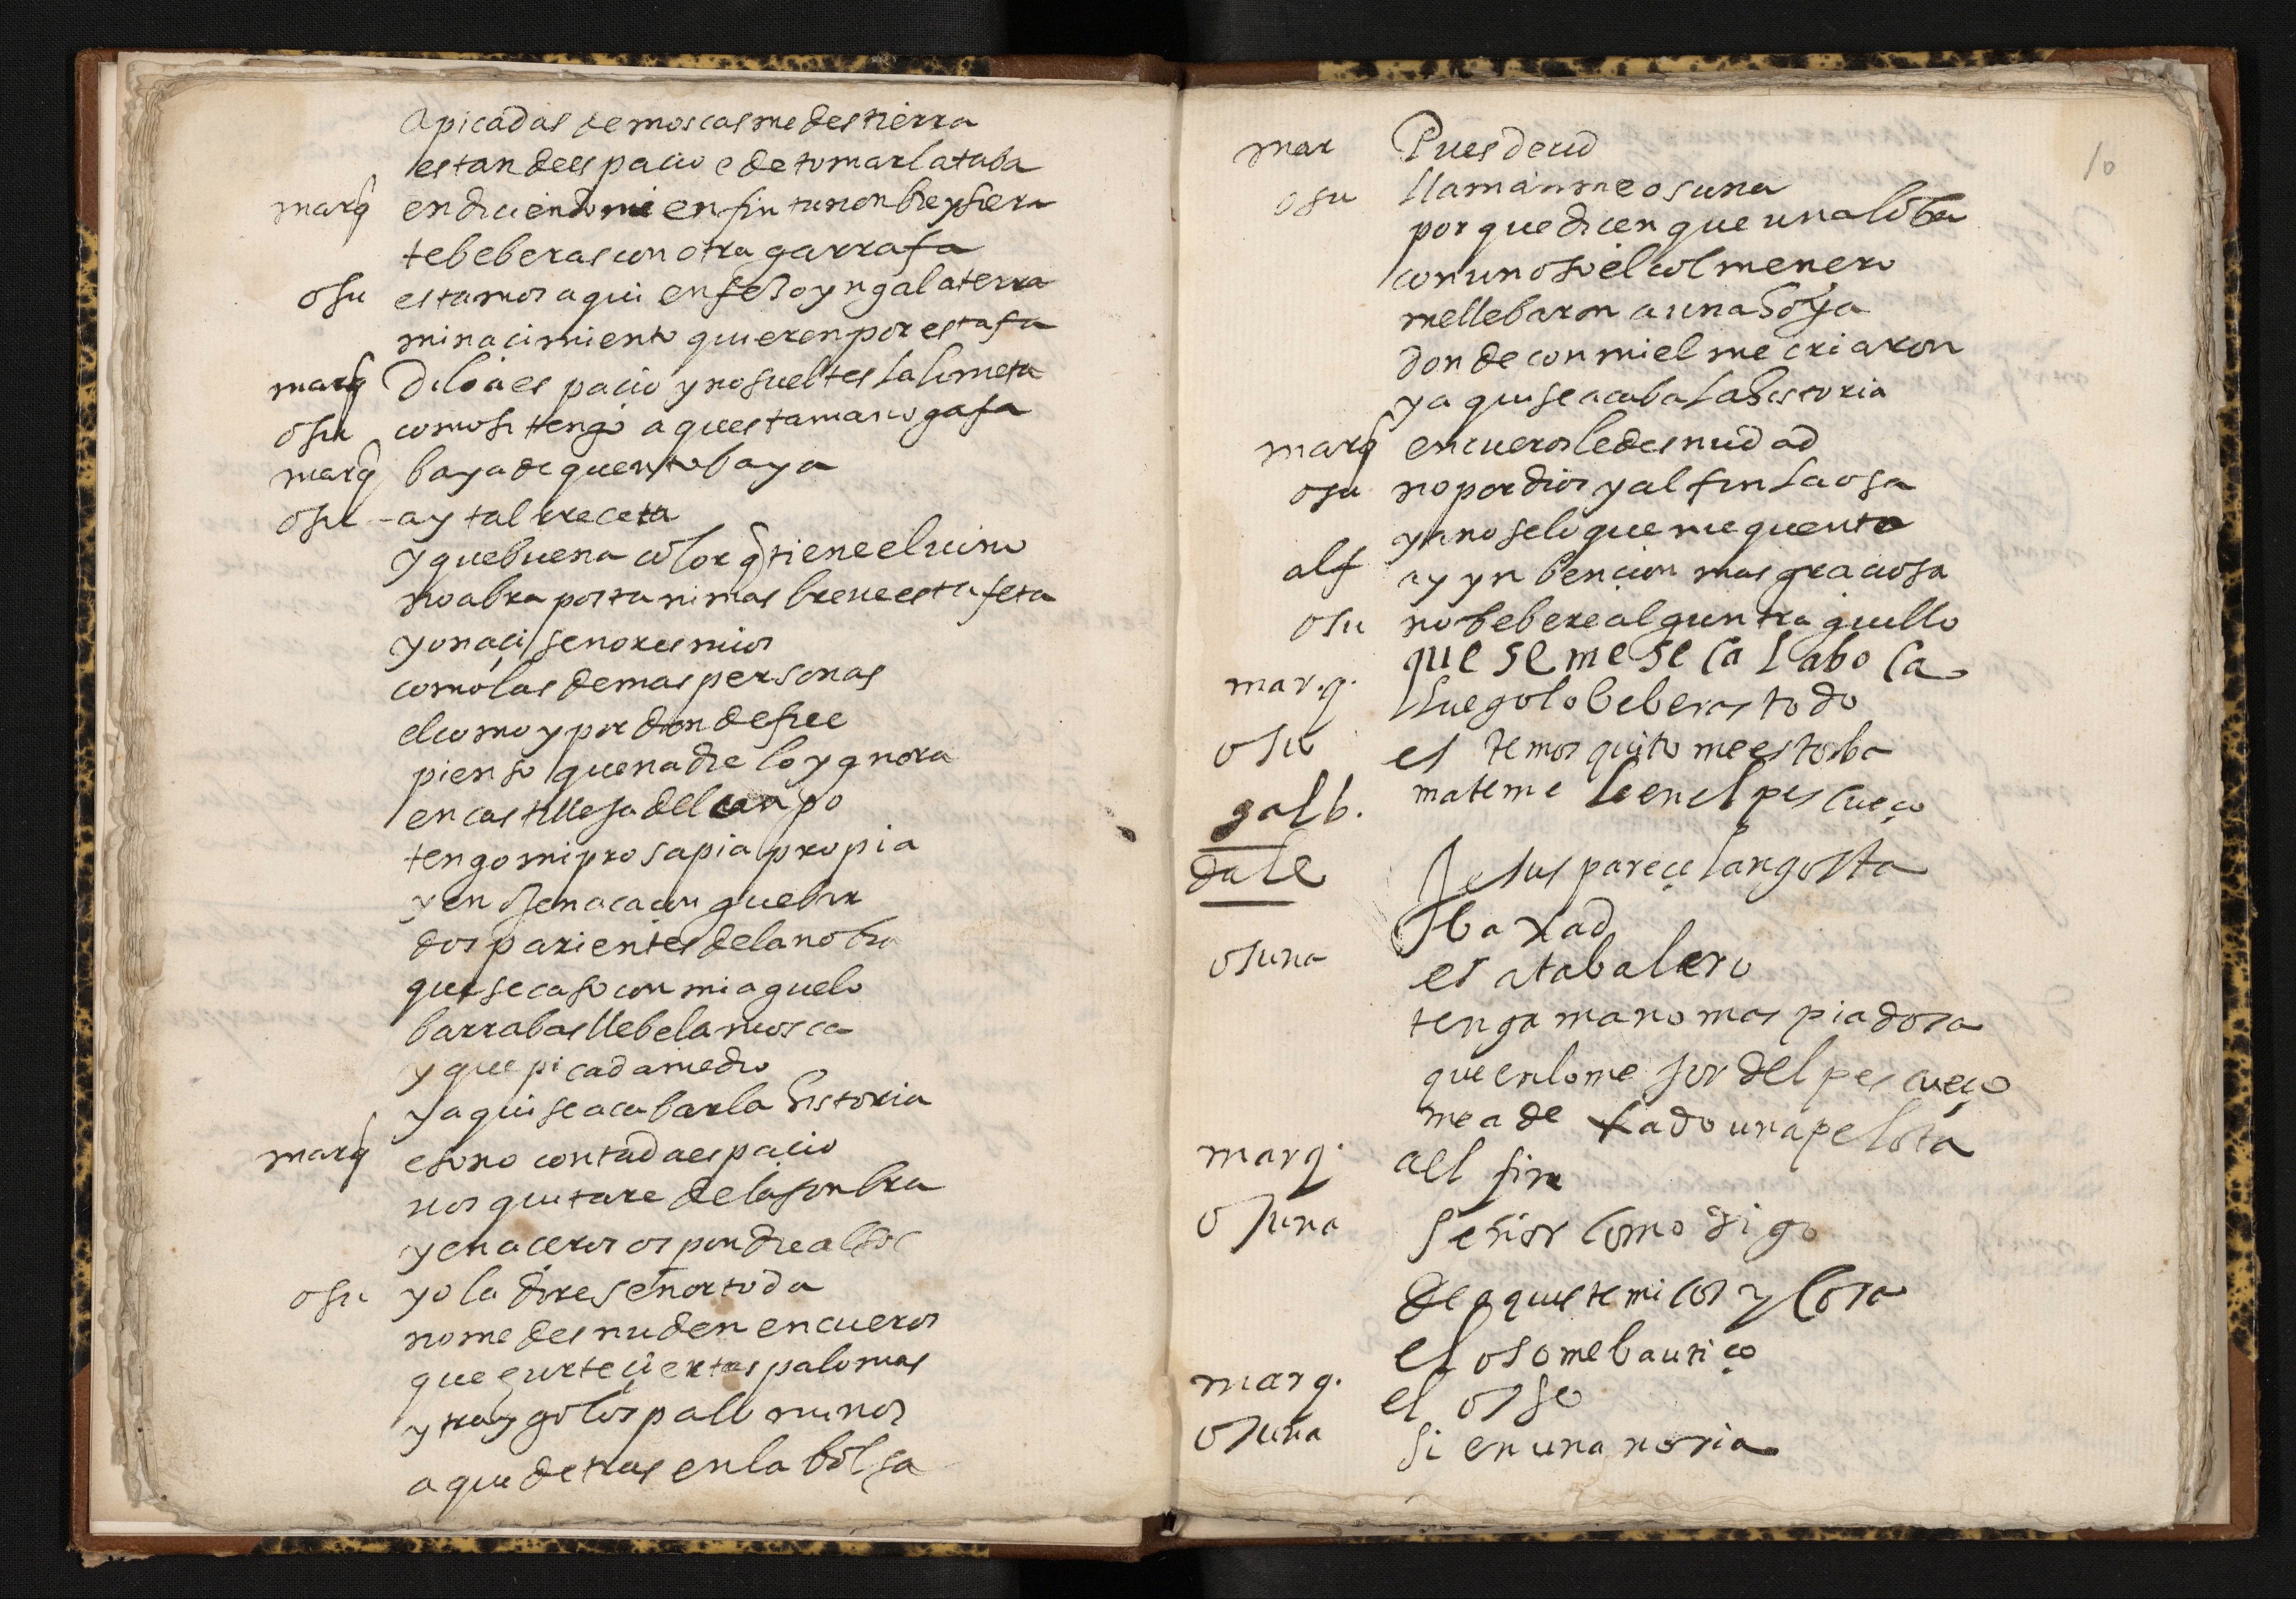 apicadas demoscas me destierra
estan deespacio e detomarla taba
marq endiciendome en fin tu nonbre yfiera
tebeberas con otra garrafa
osu estamos aqui en feso yngalaterra
minacimiento quieren por estafa
marq dilo aespacio y no sueltes la limeta
osu como si tengo aquesta mano gafa
marq baya de quento baya
osu - ay tal receta
y que buena color q tiene el uino
no abra posta ni mas breue estafeta
yo naçi señores mios
como las demas personas
el como y por donde fue
pienso que nadie lo ygnora
en castilleja del canpo
tengo mi prosapia propia
y en
dos parientes de la nobia
que se caso con mi aguelo
barrabas llebe la mosca
y que picada me dio
y aqui se acabar la historia
marq eso no contad a espacio
nos quitare de la sonbra
y en açeros os pondre al sol
osu yo la dire señor toda
no me desnuden en cueros
que gurte çiertas palomas
y traygo los palominos
aqui detras en la bolsa
10
mar Pues decid
osu llamanme osuna
por que dicen que una loba
con un oso el colmenero
me llebaron a una hoya
donde con miel me criaron
y aqui se acaba la historia
marq en cueros le desnudad
osu no por dios y al fin la osa
ya no se lo que me quento
alf ay ynbencion mas graciosa
osu no bebere algun traguillo
que se me seca la boca
mar.q. luego lo beberas todo
osu este mosquito me estorba
mateme le en el pescueço
galb.
dale Jesus pareçe langosta
baxad
osuna es atabalero
tenga mano mas piadosa
que en lo mejor del pescueço
me a dexado una pelota
marq. all fin
osuna señor como digo
de aqueste mi cos y cosa
el oso me bautiço
marq. el osso
osuna si en una noria